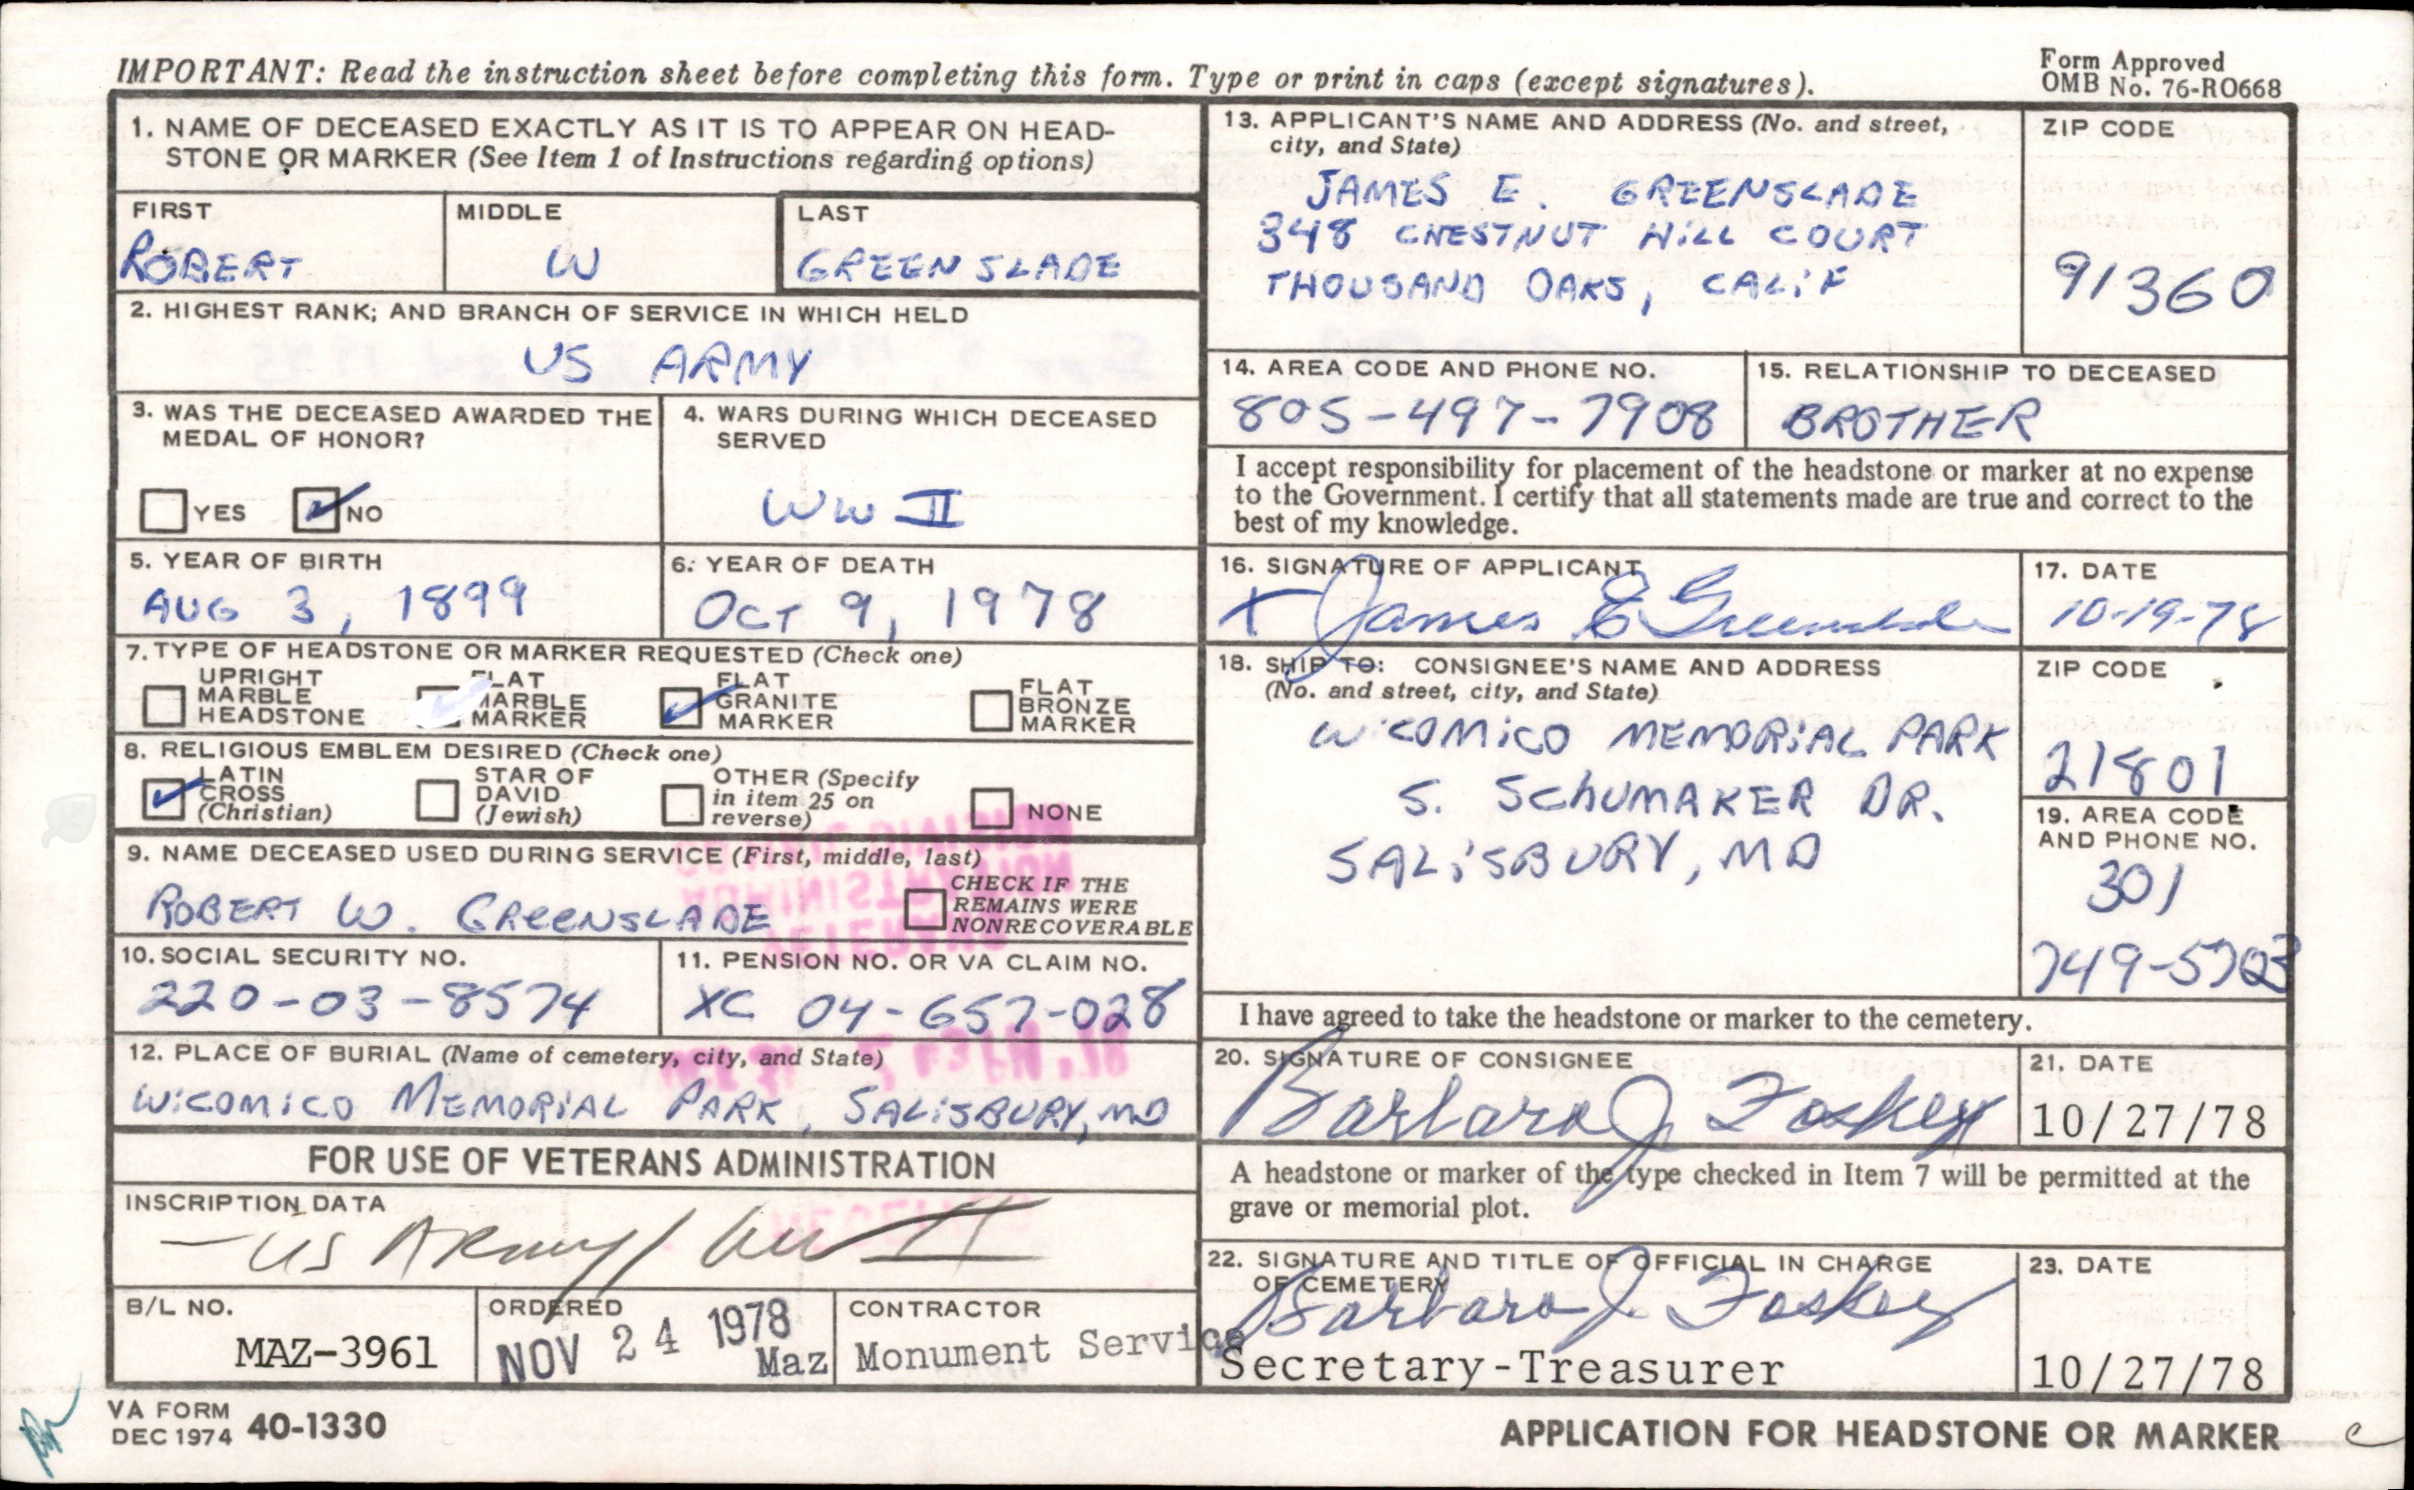 IMPORTANT: Read the instruction sheet before completing this form. Type or print in caps (except signatures).
Form Approved
OMB No. 76-RO668
1. NAME OF DECEASED EXACTLY AS IT IS TO APPEAR ON HEAD-
STONE OR MARKER (See Item 1 of Instructions regarding options)
FIRST
ROBERT
MIDDLE
W
LAST
GREENSLADE
2. HIGHEST RANK; AND BRANCH OF SERVICE IN WHICH HELD
US ARMY
3. WAS THE DECEASED AWARDED THE
MEDAL OF HONOR?
YES
NO
4. WARS DURING WHICH DECEASED
SERVED
WW II
5. YEAR OF BIRTH
AUG 3, 1899
6. YEAR OF DEATH
OCT 9, 1978
7. TYPE OF HEADSTONE OR MARKER REQUESTED (Check one)
UPRIGHT
MARBLE
HEADSTONE
FLAT
MARBLE
MARKER
FLAT
GRANITE
MARKER
FLAT
BRONZE
MARKER
8. RELIGIOUS EMBLEM DESIRED (Check one)
LATIN
CROSS
(Christian)
STAR OF
DAVID
(Jewish)
OTHER (Specify
in item 25 on
reverse)
NONE
9. NAME DECEASED USED DURING SERVICE (First, middle, last)
ROBERT W. GREENSLADE
CHECK IF THE
REMAINS WERE
NONRECOVERABLE
10. SOCIAL SECURITY NO.
220-03-8574
11. PENSION NO. OR VA CLAIM NO.
XC 04-657-028
12. PLACE OF BURIAL (Name of cemetery, city, and State)
WICOMICO MEMORIAL PARK, SALISBURY, MD
FOR USE OF VETERANS ADMINISTRATION
INSCRIPTION DATA
- US ARMY / WW II
B/L NO.
MAZ-3961
ORDERED
NOV 24 1978
Maz
CONTRACTOR
Monument Service
13. APPLICANT'S NAME AND ADDRESS (No. and street,
city, and State)
JAMES E. GREENSLADE
348 CHESTNUT HILL COURT
THOUSAND OAKS, CALIF
ZIP CODE
91360
14. AREA CODE AND PHONE NO.
805-497-7908
15. RELATIONSHIP TO DECEASED
BROTHER
I accept responsibility for placement of the headstone or marker at no expense
to the Government. I certify that all statements made are true and correct to the
best of my knowledge.
16. SIGNATURE OF APPLICANT
X James E Greenslade
17. DATE
10-19-78
18. SHIP TO: CONSIGNEE'S NAME AND ADDRESS
(No. and street, city, and State)
WICOMICO MEMORIAL PARK
S. SCHUMAKER DR.
SALISBURY, MD
ZIP CODE
21801
19. AREA CODE
AND PHONE NO.
301
749-5703
I have agreed to take the headstone or marker to the cemetery.
20. SIGNATURE OF CONSIGNEE
Barbara J. Foskey
21. DATE
10/27/78
A headstone or marker of the type checked in Item 7 will be permitted at the
grave or memorial plot.
22. SIGNATURE AND TITLE OF OFFICIAL IN CHARGE
OF CEMETERY
Barbara J. Foskey
Secretary-Treasurer
23. DATE
10/27/78
VA FORM
DEC 1974 40-1330
APPLICATION FOR HEADSTONE OR MARKER